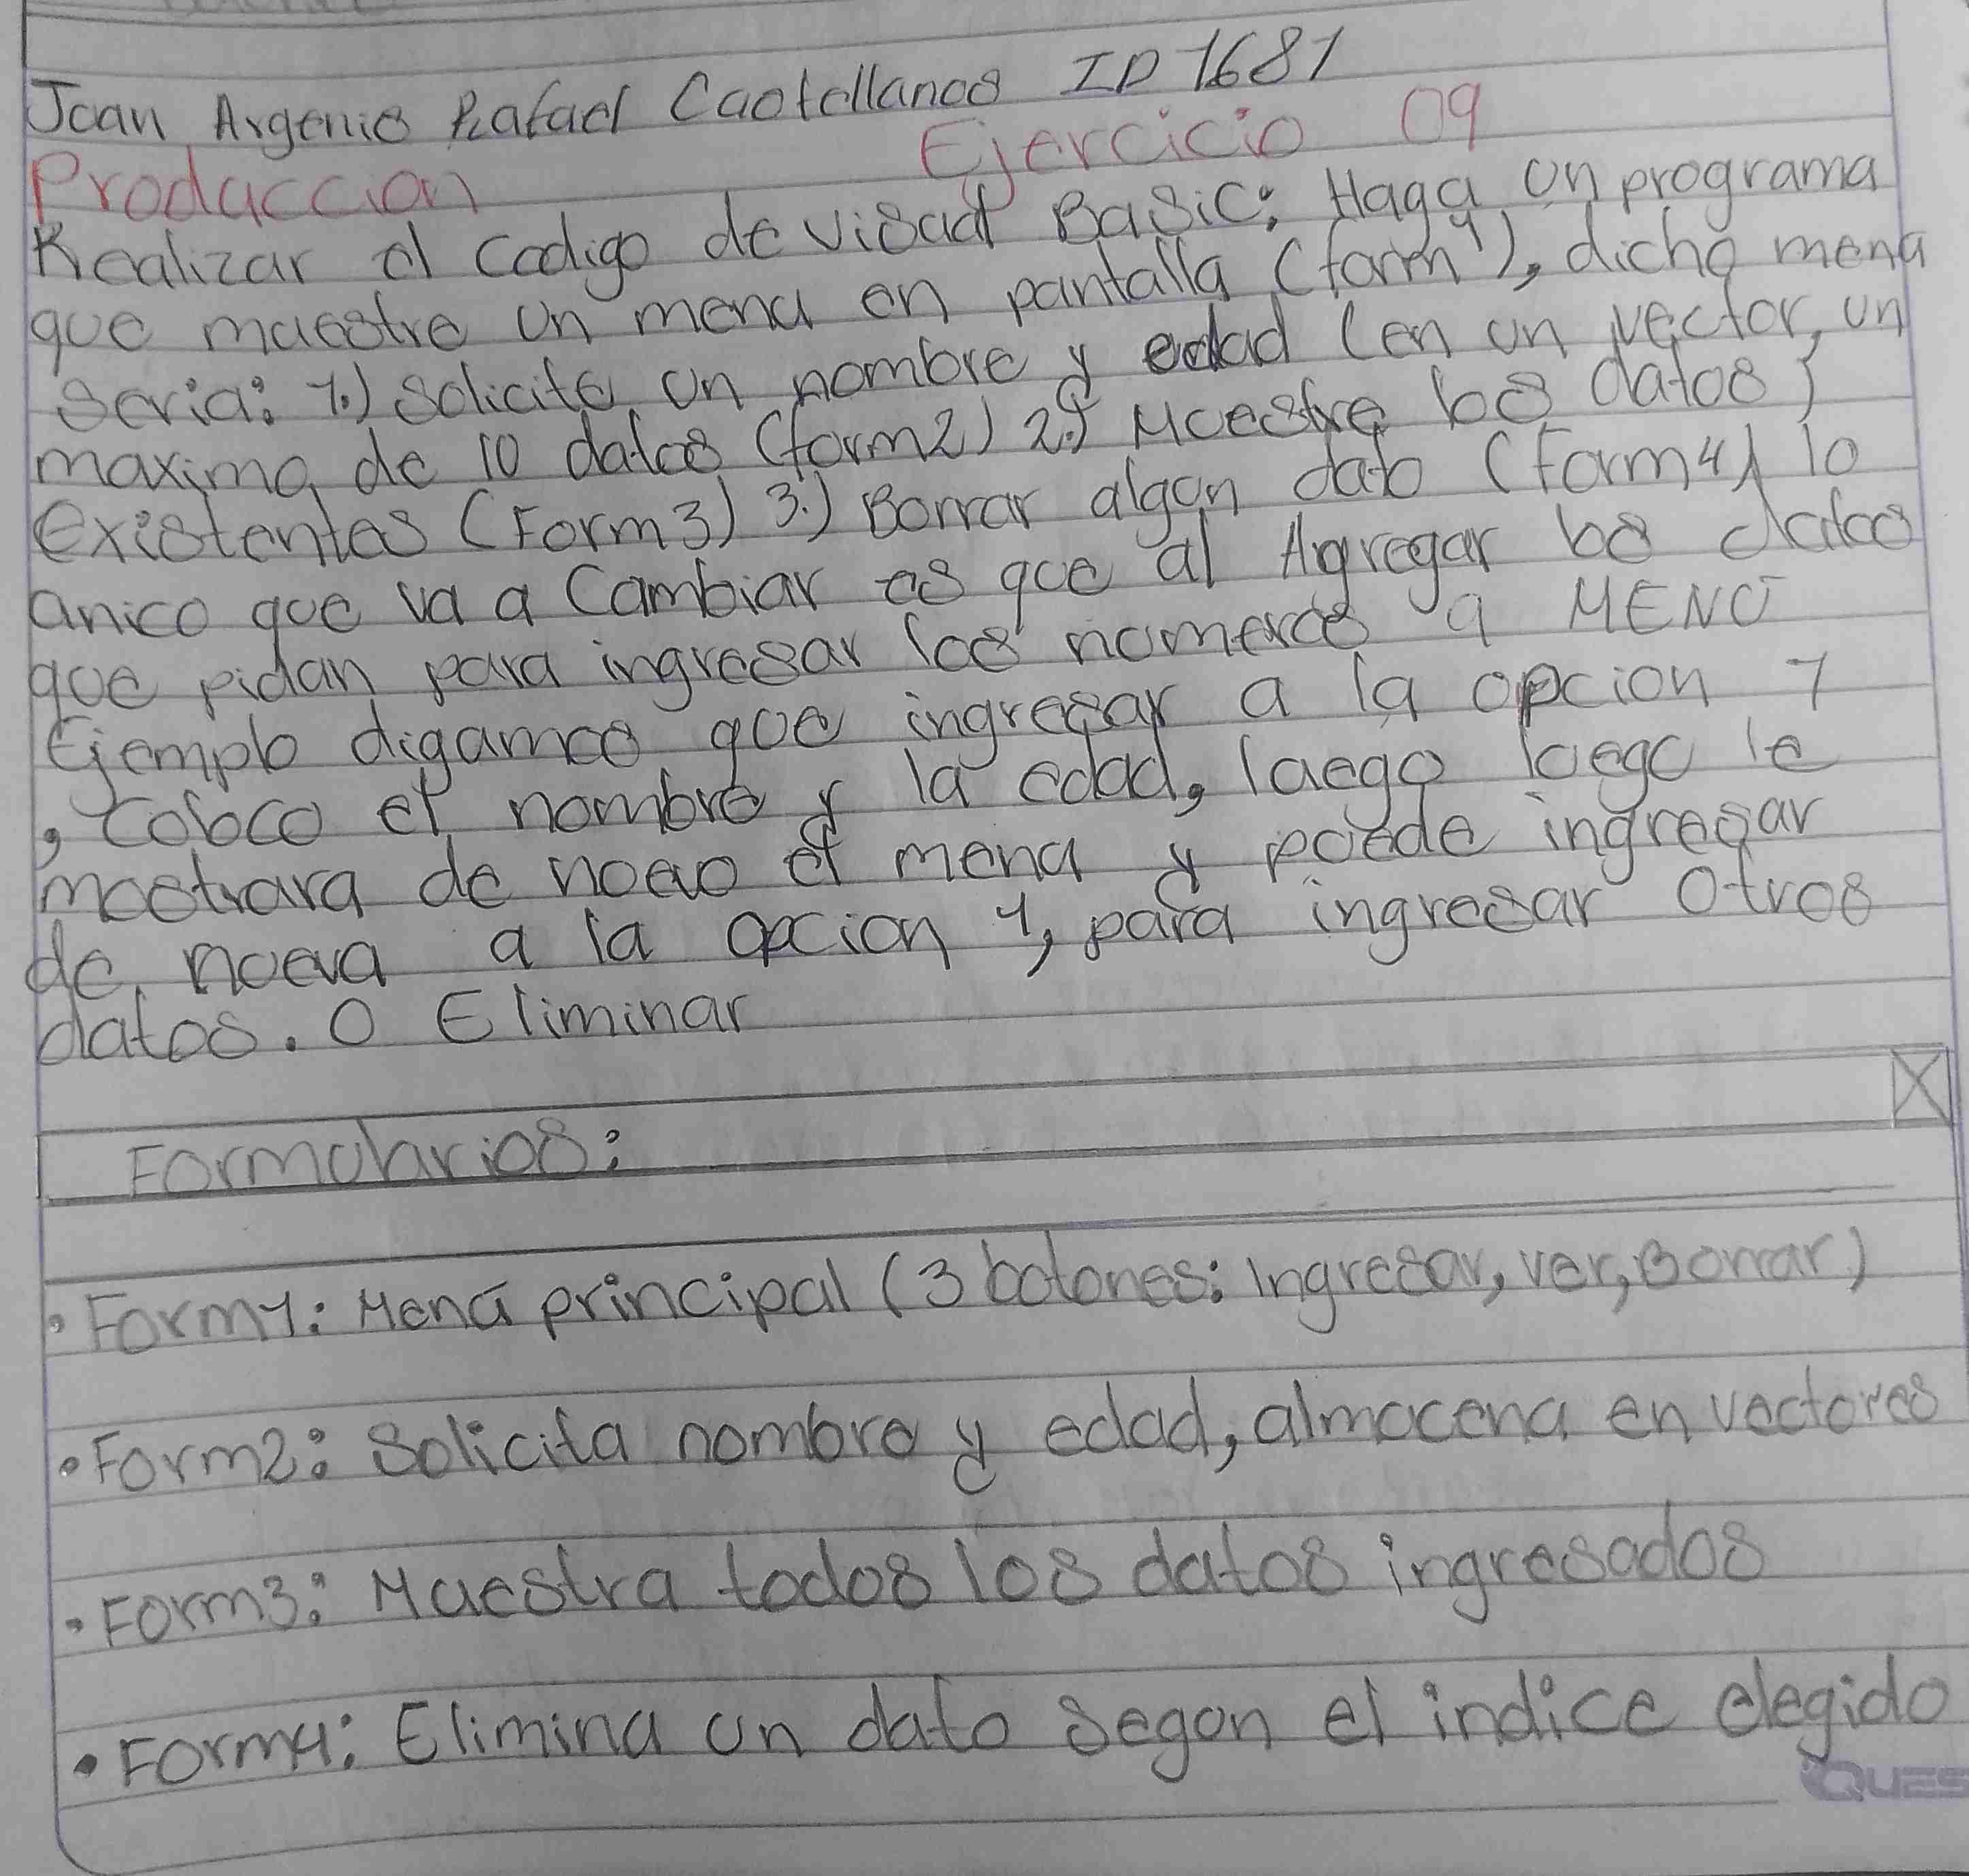 Joan Argenis Rafael Castellanos ID 1681
Produccion Ejercicio 09
Realizar el codigo de visual Basic: Haga un programa
que muestre un menu en pantalla (form1), dicho menu
seria: 1.) solicite un nombre y edad (en un vector, un
maximo de 10 datos (form2) 2.) Muestre los datos
existentes (Form3) 3.) Borrar algun dato (Form4) lo
unico que va a Cambiar es que al Agregar los datos
que pidan para ingresar los numeros a MENÚ
Ejemplo digamos que ingresar a la opcion 1
, coloco el nombre y la edad, luego luego le
mostrara de nuevo el menu y puede ingresar
de nueva a la opcion 1, para ingresar otros
datos. O Eliminar
X
Formularios:
• Form1: Menú principal (3 botones: Ingresar, ver, Borrar)
• Form2: Solicita nombre y edad, almacena en vectores
• Form3: Muestra todos los datos ingresados
• Form4: Elimina un dato segun el indice elegido
QUES